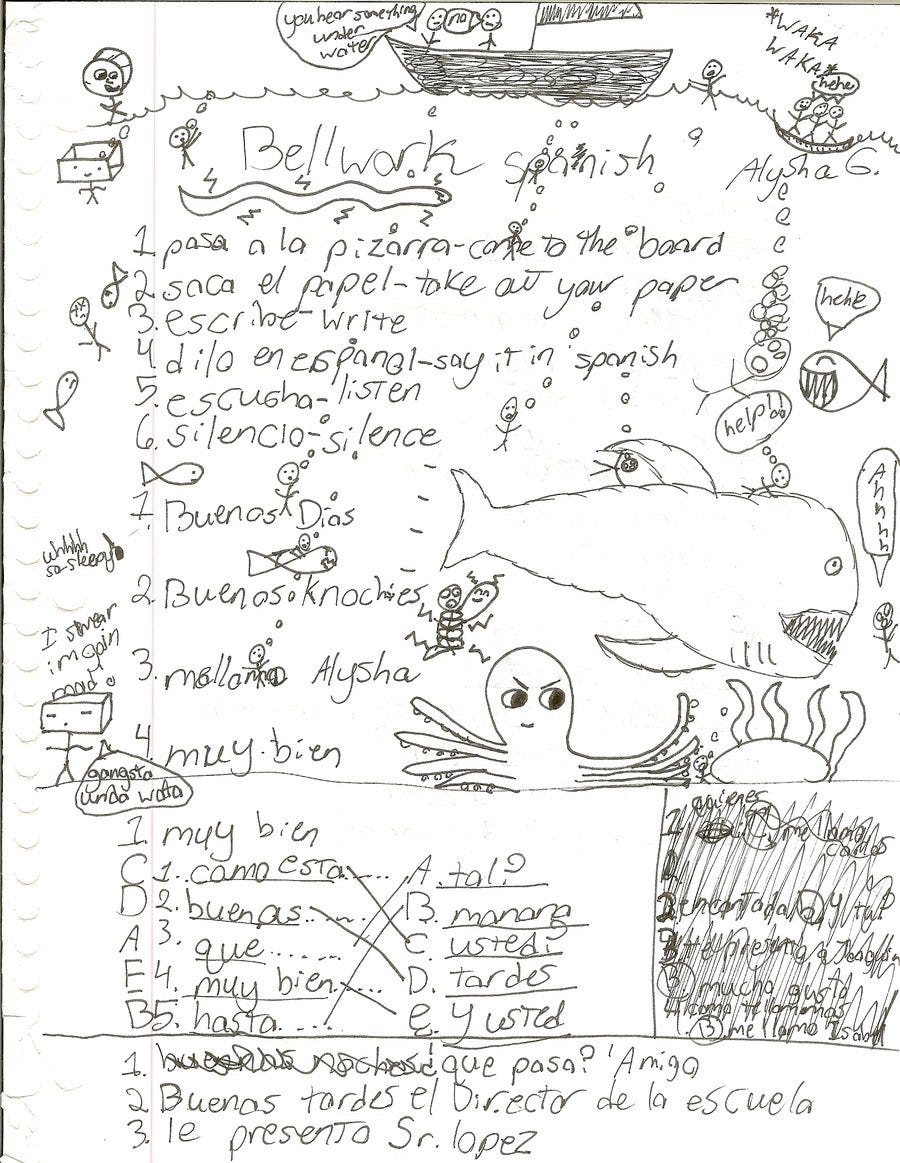 you hear something
under
water
no
*WAKA
WAKA*
hehe
Bellwork Spanish Alysha G.
1. pasa a la pizarra-come to the board
2. saca el papel-take out your paper
3. escribe-write
4. dilo en espanol-say it in spanish
5. escusha-listen
6. silencio-silence
hehe
help!!
Ahhhh
1. Buenos Dias
2. Buenos Knochies
3. mellamo Alysha
4 muy bien
uhhhh
so sleepy
I swear
im goin
mad
gangsta
unda wata
1. muy bien
C 1. como esta..... A. tal?
D 2. buenas..... B. manana
A 3. que...... C. usted?
E 4. muy bien..... D. tardes
B 5. hasta.... E. Y usted
quienes
me llamo
Carlos
encantada Y tu?
te presento a
B mucho gusto
A como te llamas
B me llamo Isabel
1. que pasa? Amigo
2 Buenas tardes el Director de la escuela
3. le presento Sr. lopez